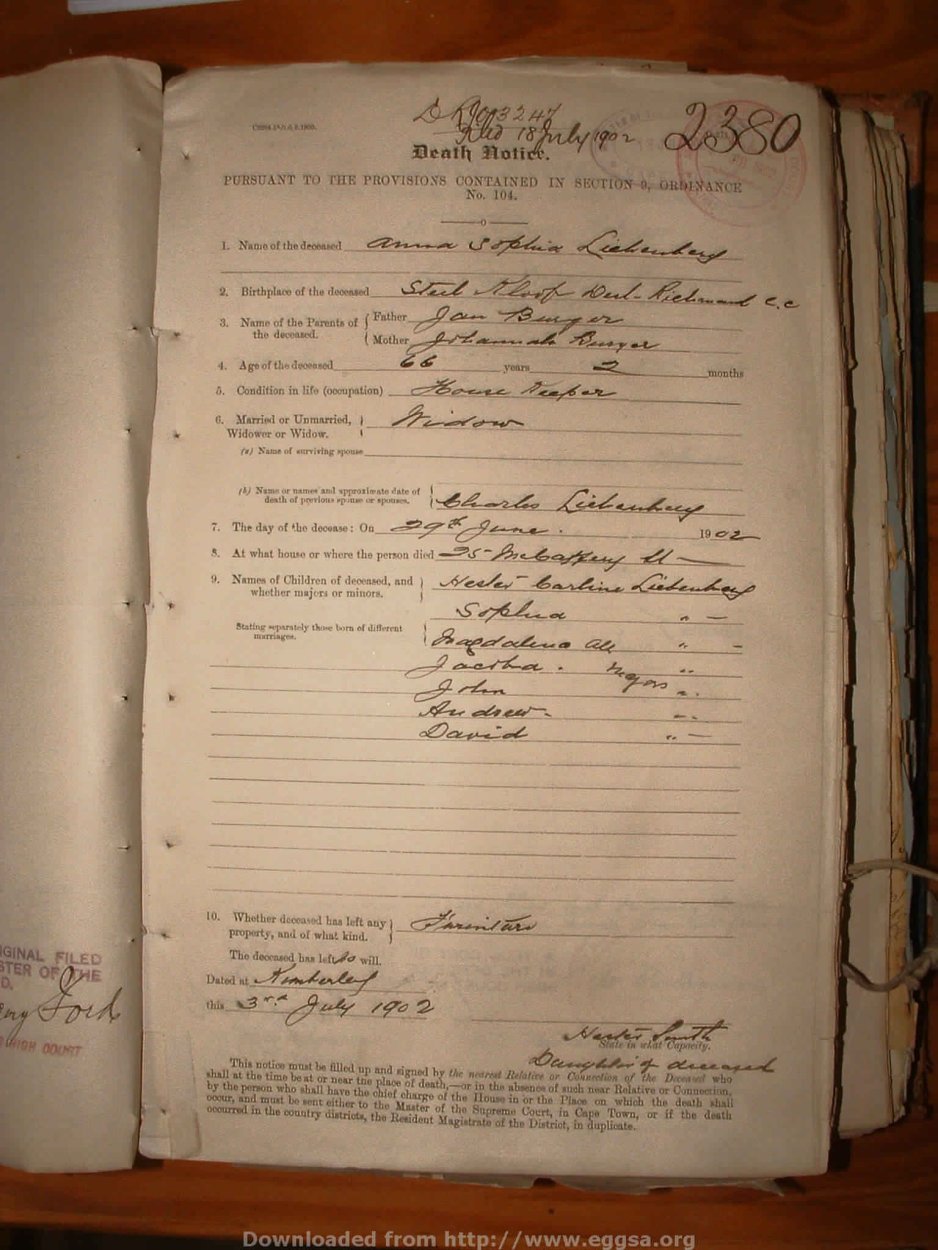 2380
Red 18 July 1902
Death Notice.
PURSUANT TO THE PROVISIONS CONTAINED IN SECTION 9, ORDINANCE
No. 104.
1. Name of the deceased Anna Sophia Liebenberg
2. Birthplace of the deceased Kloof Dist. Richmond C.C
3. Name of the Parents of the deceased. Father Jan Burger
Mother Johannah Burger
4. Age of the deceased 66 years 2 months
5. Condition in life (occupation) House Keeper
6. Married or Unmarried, Widow
Widower or Widow.
(a) Name of surviving spouse
(b) Name or names and approximate date of
death of previous spouse or spouses. Charles Liebenberg
7. The day of the decease: On 29th June. 1902
8. At what house or where the person died 25 St
9. Names of Children of deceased, and Hester Carline Liebenberg
whether majors or minors.
Sophia " -
Stating separately those born of different
marriages.
Magdalena All " -
Jacoba. Majors "
John "
Andrew - " -
David " -
10. Whether deceased has left any Furniture
property, and of what kind.
The deceased has left no will.
Dated at Kimberley
this 3rd July 1902
Hester Smith
State in what Capacity.
Daughter of deceased
This notice must be filled up and signed by the nearest Relative or Connection of the Deceased who
shall at the time be at or near the place of death,—or in the absence of such near Relative or Connection,
by the person who shall have the chief charge of the House in or the Place on which the death shall
occur, and must be sent either to the Master of the Supreme Court, in Cape Town, or if the death
occurred in the country districts, the Resident Magistrate of the District, in duplicate.
IGINAL FILED
STER OF THE
D.
HIGH COURT
Downloaded from http://www.eggsa.org